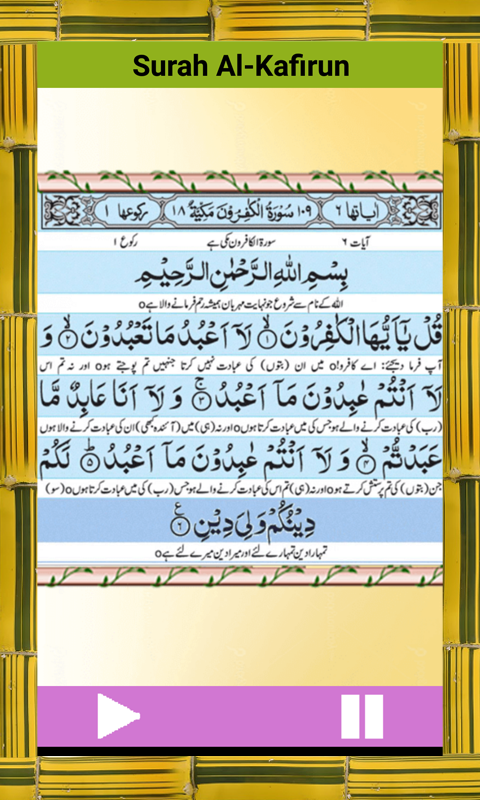 Surah Al-Kafirun
اٰیاتھا ٦ ١٠٩ سُوْرَةُ الْكٰفِرُوْنَ مَكِّيَّةٌ ١٨ رکوعھا ١
آیات ٦ سورۃ الکافرون مکی ہے رکوع ١
بِسْمِ اللهِ الرَّحْمٰنِ الرَّحِيْمِ
اللہ کے نام سے شروع جو نہایت مہربان ہمیشہ رحم فرمانے والا ہےo
قُلْ يٰٓاَيُّهَا الْكٰفِرُوْنَ ۙ﴿١﴾ لَآ اَعْبُدُ مَا تَعْبُدُوْنَ ۙ﴿٢﴾ وَ
آپ فرما دیجئے: اے کافرو!o میں ان (بتوں) کی عبادت نہیں کرتا جنہیں تم پوجتے ہوo اور نہ تم اس
لَآ اَنْتُمْ عٰبِدُوْنَ مَآ اَعْبُدُ ۚ﴿٣﴾ وَ لَآ اَنَا عَابِدٌ مَّا
(رب) کی عبادت کرنے والے ہو جس کی میں عبادت کرتا ہوںo اور نہ (ہی) میں (آئندہ کبھی) ان کی عبادت کرنے والا ہوں
عَبَدْتُّمْ ۙ﴿٤﴾ وَ لَآ اَنْتُمْ عٰبِدُوْنَ مَآ اَعْبُدُ ؕ﴿٥﴾ لَكُمْ
جن (بتوں) کی تم پرستش کرتے ہوo اور نہ (ہی) تم اس کی عبادت کرنے والے ہو جس (رب) کی میں عبادت کرتا ہوںo (سو)
دِيْنُكُمْ وَلِيَ دِيْنِ ﴿٦﴾ ع
تمہارا دین تمہارے لئے اور میرا دین میرے لئے ہےo